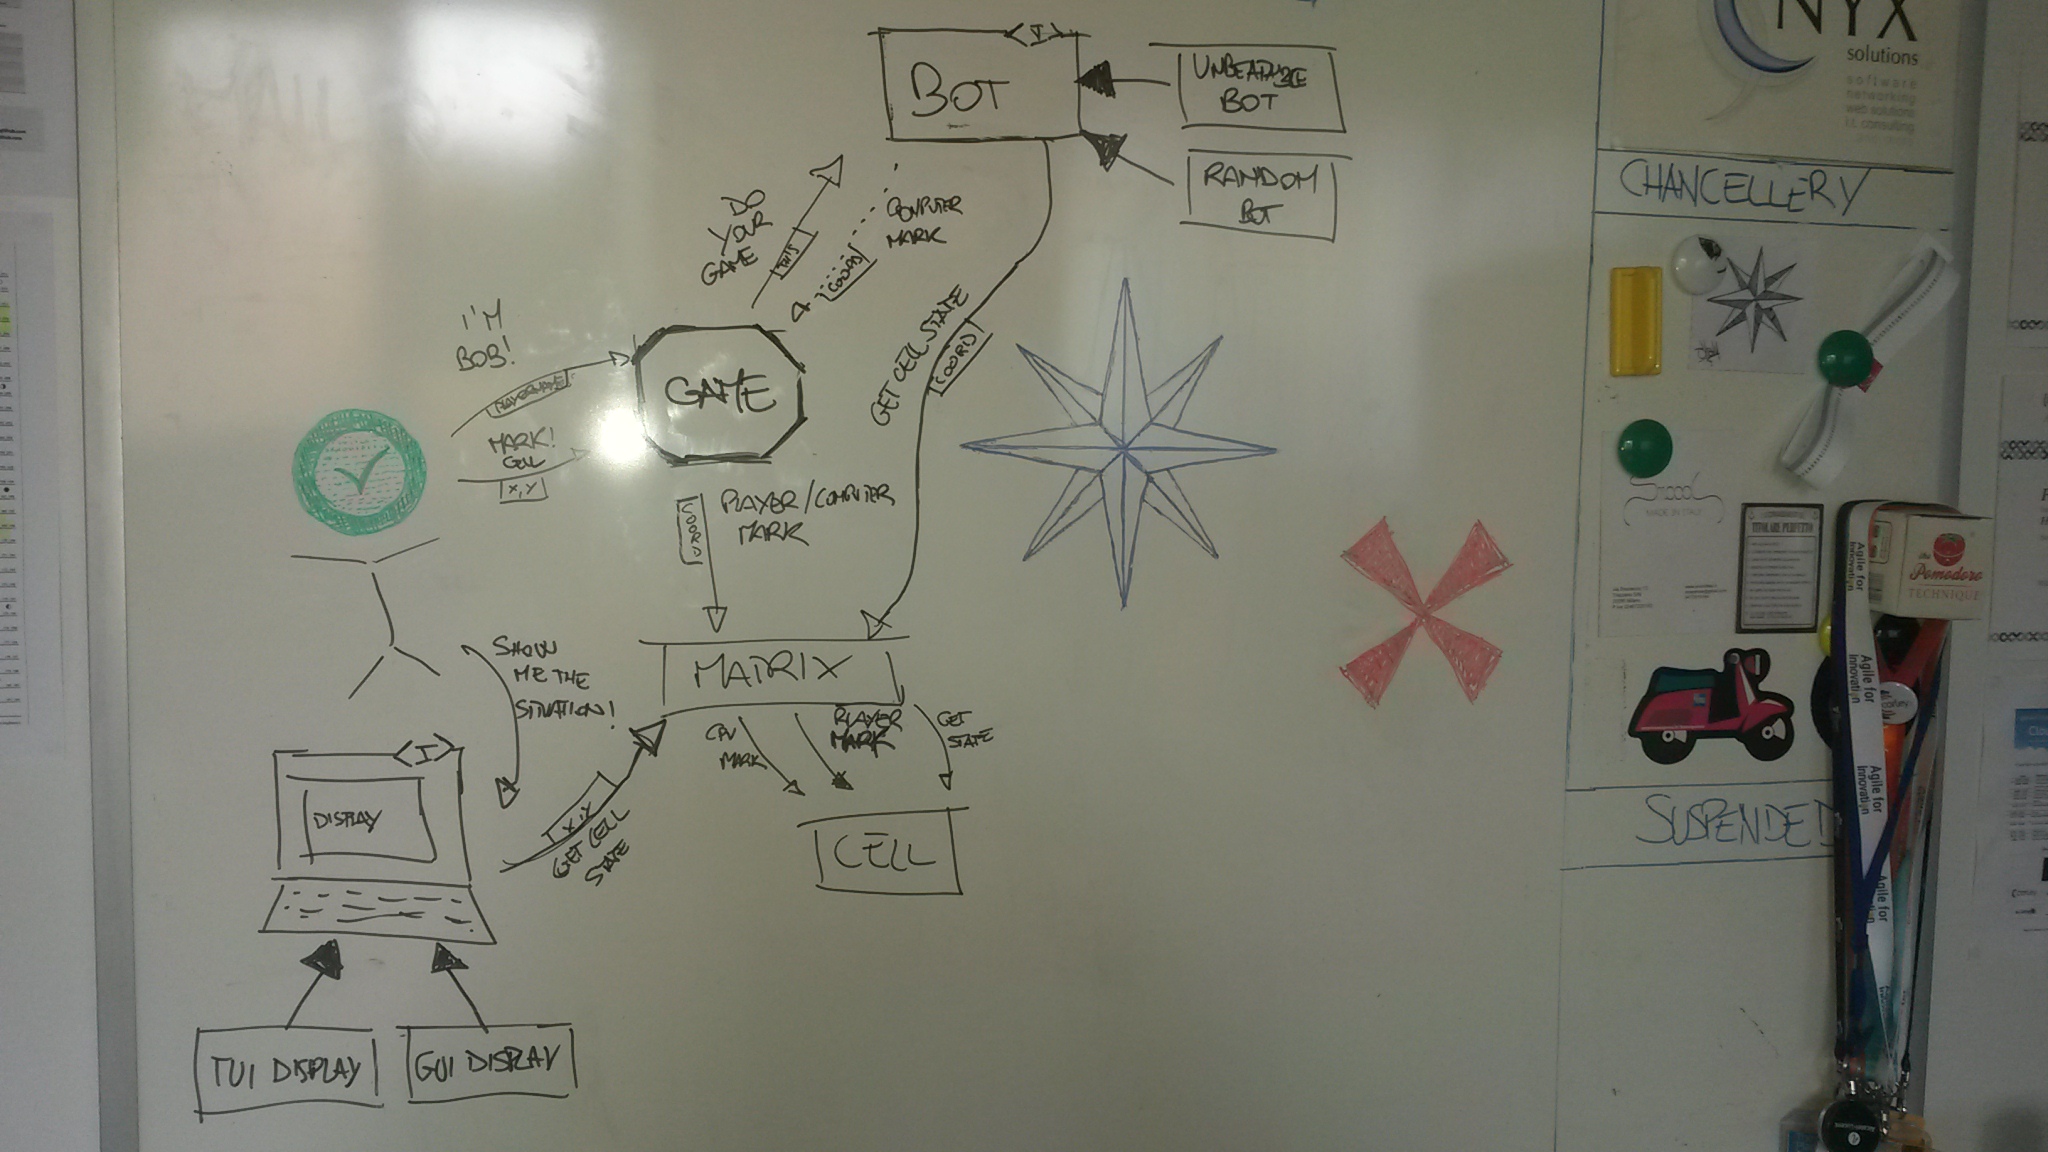 BOT
<I>
UNBEATABLE
BOT
RANDOM
BOT
DO
YOUR
GAME
THIS
COORD
COMPUTER
MARK
I'M
BOB!
PLAYERNAME
MARK!
CELL
X,Y
GAME
GET CELL STATE
COORD
COORD
PLAYER/COMPUTER
MARK
SHOW
ME THE
SITUATION!
MATRIX
CPU
MARK
PLAYER
MARK
GET
STATE
CELL
<I>
DISPLAY
X,Y
GET CELL
STATE
TUI DISPLAY
GUI DISPLAY
NYX
solutions
software
networking
web solutions
i.t. consulting
CHANCELLERY
MADE IN ITALY
TITOLARE PERFETTO
the
Pomodoro
TECHNIQUE
Agile for
Innovation
Agile for
Innovation
Agile for
Innovation
Agile for
SUSPENDED